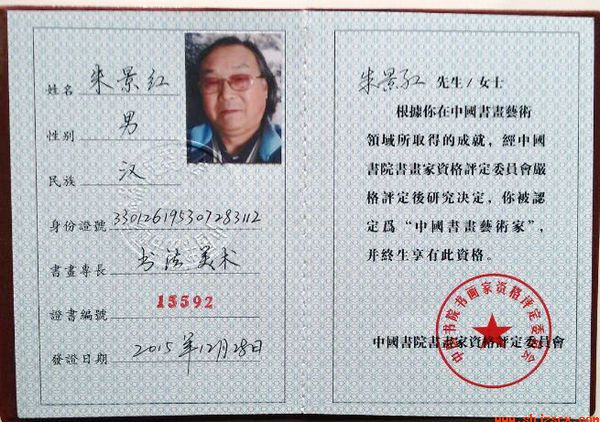 姓名 朱景红
性别 男
民族 汉
身份證號 330126195307283112
書畫專長 书法 美术
證書編號 15592
發證日期 2015年12月28日
朱景红 先生/女士
根據你在中國書畫藝術
領域所取得的成就，經中國
書院書畫家資格評定委員會嚴
格評定後研究決定，你被認
定爲“中國書畫藝術家”，
并終生享有此資格。
中國書院書畫家資格評定委員會
中国书院书画家资格评定委员会